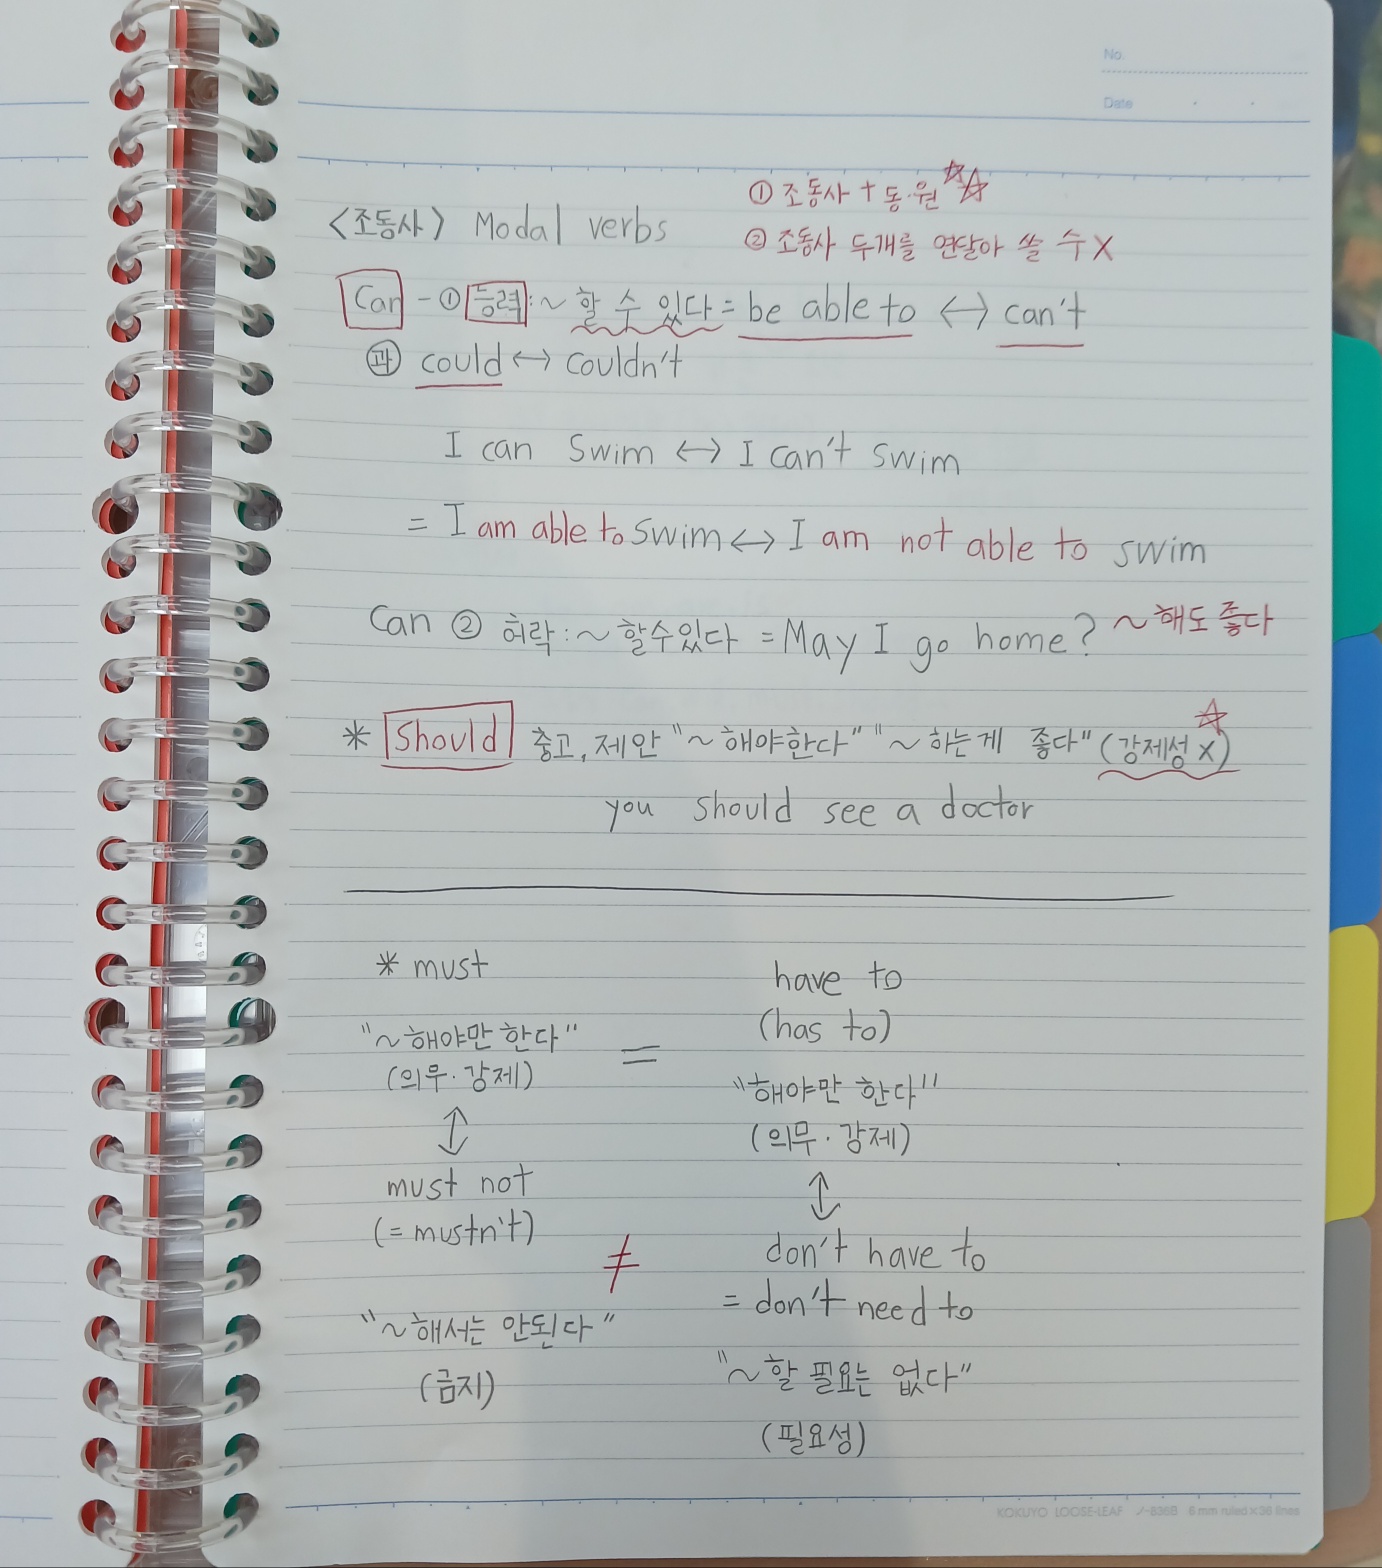 No.
Date
① 조동사 + 동.원 ☆☆
<조동사> Modal verbs
② 조동사 두개를 연달아 쓸 수 X
Can - ① 능력 : ~ 할 수 있다 = be able to ↔ can't
㉠ could ↔ couldn't
I can swim ↔ I can't swim
= I am able to swim ↔ I am not able to swim
Can ② 허락 : ~ 할수있다 = May I go home? ~해도 좋다
* Should 충고, 제안 "~해야한다" "~하는게 좋다" (강제성 X) ☆
you should see a doctor
* must
have to
(has to)
"~해야만 한다"
(의무·강제)
=
"해야만 한다"
(의무·강제)
↕
↕
must not
(= mustn't)
≠
don't have to
= don't need to
"~해서는 안된다"
(금지)
"~할 필요는 없다"
(필요성)
KOKUYO LOOSE-LEAF ノ-836B 6 mm ruled×36 lines